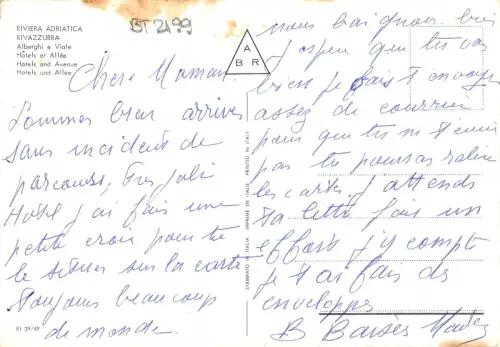 RIVIERA ADRIATICA
RIVAZZURRA
Alberghi e Viale
Hôtels et Allée
Hotels and Avenue
Hotels und Allee
BT 2199
A
B R
Chere Maman
Sommes bien arrivés
sans incident de
parcours, Tres joli
Hotel j'ai fais une
petite croix pour te
le situer sur la carte
Toujours beaucoup
de monde.
RI 39/49
STAMPATO IN ITALIA IMPRIMÉ EN ITALIE PRINTED IN ITALY
nous baignons bien
J'espere que tu vas
bien je fais t envoye
assez de courrier
pour que tu ne t'ennui
pas tu pourras relire
les cartes, j attends
ta lettre fais un
effort j'y compte
je t'ai fais des
enveloppes
B Baisès